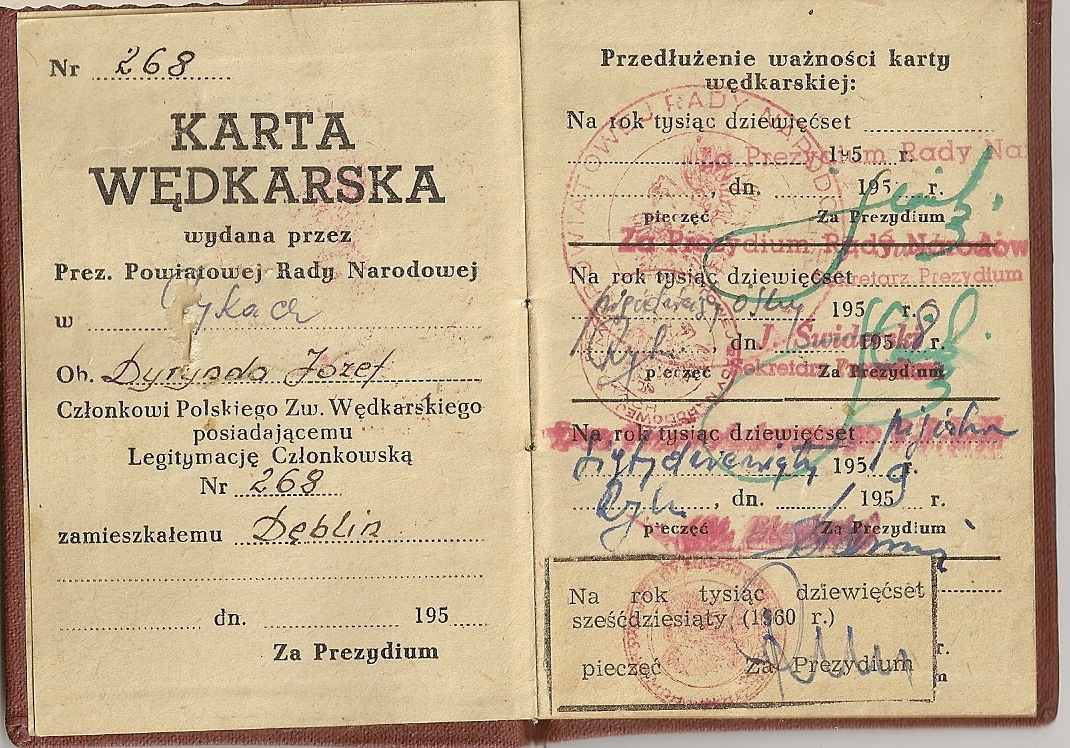 Nr 268
KARTA
WĘDKARSKA
wydana przez
Prez. Powiatowej Rady Narodowej
w
Ob. Dyrynda Józef
Członkowi Polskiego Zw. Wędkarskiego
posiadającemu
Legitymację Członkowską
Nr 268
zamieszkałemu Dęblin
dn. 195
Za Prezydium
Przedłużenie ważności karty
wędkarskiej:
Na rok tysiąc dziewięćset
195 r.
Za Prezydium Rady
, dn. 195 r.
pieczęć Za Prezydium
Za Prezydium Rady Narodow
Na rok tysiąc dziewięćset
Sekretarz Prezydium
195 r.
, dn. 1958 r.
J. Świderski
pieczęć Za Prezydium
Sekretarz
Na rok tysiąc dziewięćset
1959 r.
, dn. 195 r.
pieczęć Za Prezydium
Na rok tysiąc dziewięćset
sześćdziesiąty (1960 r.)
r.
pieczęć Za Prezydium